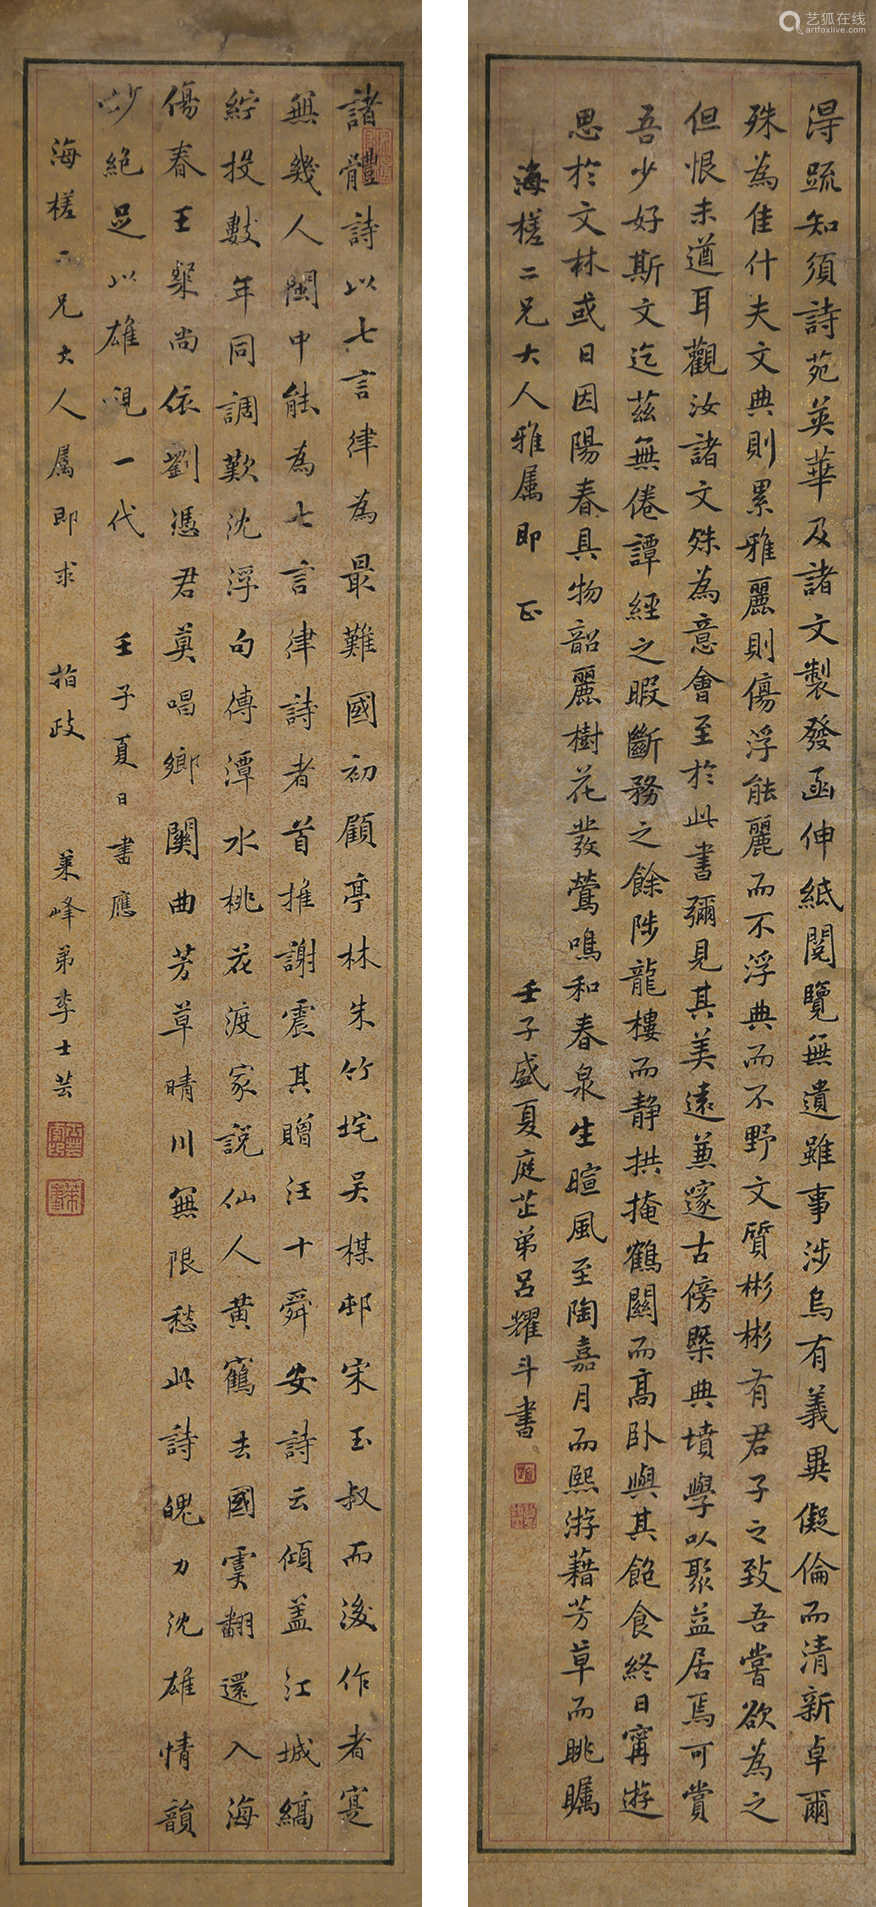 得疏知須詩苑英華及諸文製發函伸紙閱覽無遺雖事涉烏有義異儗倫而清新卓爾
殊為佳什夫文典則累雅麗則傷浮能麗而不浮典而不野文質彬彬有君子之致吾嘗欲為之
但恨未遒耳觀汝諸文殊為意會至於此書彌見其美遠兼邃古傍槩典墳學以聚益居焉可賞
吾少好斯文迄茲無倦譚經之暇斷務之餘陟龍樓而靜拱掩鶴關而高卧與其飽食終日甯遊
思於文林或日因陽春具物韶麗樹花發鶯鳴和春泉生暄風至陶嘉月而熙游藉芳草而眺矚
海槎二兄大人雅属即 正
壬子盛夏庭芷弟呂耀斗書
諸體詩以七言律為最難國初顧亭林朱竹垞吳槑邨宋玉叔而後作者寔
無幾人閩中能為七言律詩者首推謝震其贈汪十舜安詩云傾盖江城縞
紵投數年同調歎沈浮句傳潭水桃花渡家說仙人黄鶴去國虞翻還入海
傷春王粲尚依劉憑君莫唱鄉關曲芳草晴川無限愁此詩魄力沈雄情韻
妙絕足以雄視一代 壬子夏日書應
海槎二兄大人属即求 指政 萊峰弟李士芸
艺狐在线
artfoxlive.com